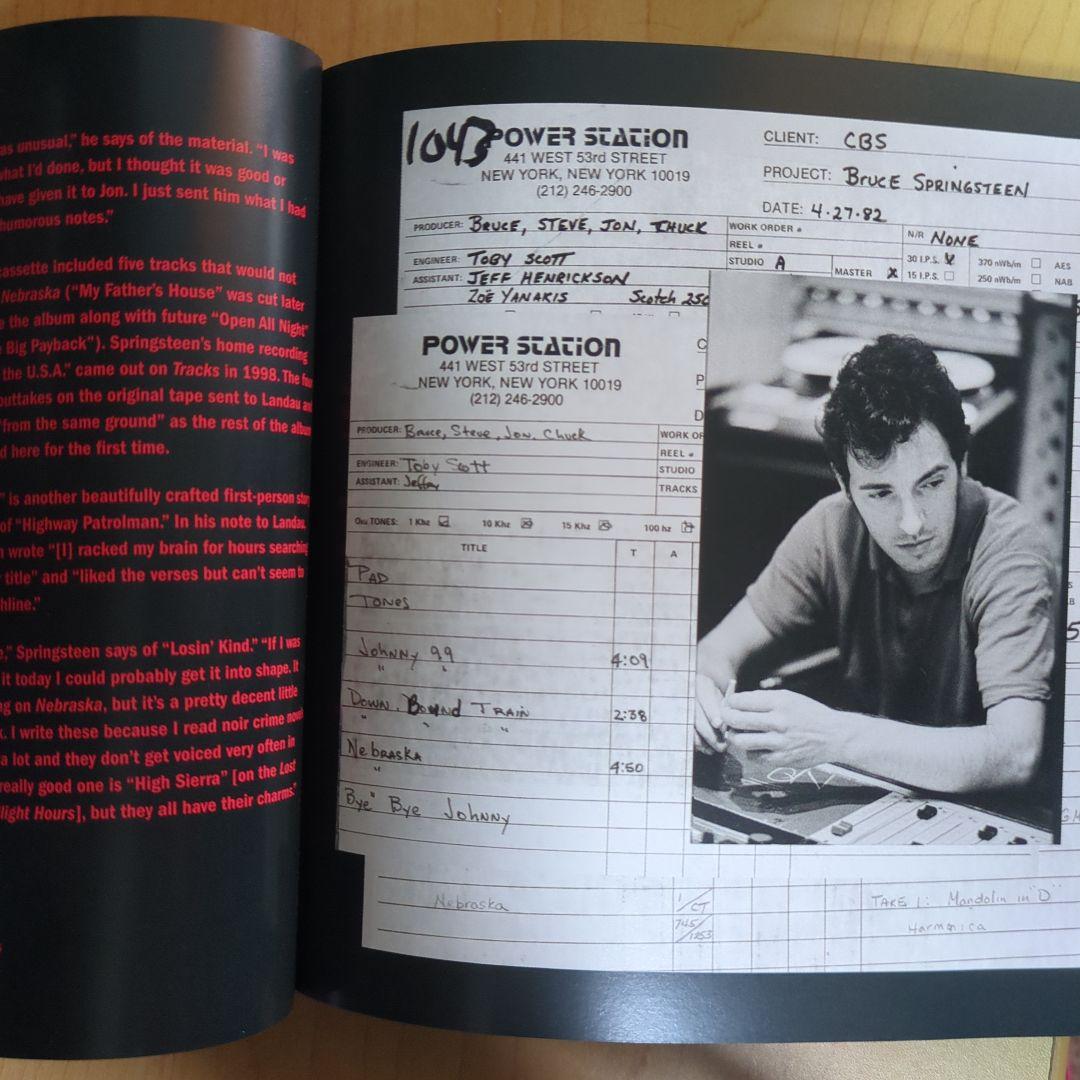 as unusual," he says of the material. "I was
what I'd done, but I thought it was good or
have given it to Jon. I just sent him what I had
humorous notes."
cassette included five tracks that would not
Nebraska ("My Father's House" was cut later
e the album along with future "Open All Night"
Big Payback"). Springsteen's home recording
the U.S.A." came out on Tracks in 1998. The fou
outtakes on the original tape sent to Landau and
"from the same ground" as the rest of the album
d here for the first time.
" is another beautifully crafted first-person stor
of "Highway Patrolman." In his note to Landau,
n wrote "[I] racked my brain for hours searching
title" and "liked the verses but can't seem to
hline."
e," Springsteen says of "Losin' Kind." "If I was
it today I could probably get it into shape. It
ng on Nebraska, but it's a pretty decent little
k. I write these because I read noir crime novels
a lot and they don't get voiced very often in
really good one is "High Sierra" [on the Lost
light Hours], but they all have their charms."
1043 POWER STATION
441 WEST 53rd STREET
NEW YORK, NEW YORK 10019
(212) 246-2900
CLIENT: CBS
PROJECT: BRUCE SPRINGSTEEN
DATE: 4.27.82
PRODUCER: BRUCE, STEVE, JON, CHUCK
ENGINEER: TOBY SCOTT
ASSISTANT: JEFF HENRICKSON
ZOË YANAKIS Scotch 250
WORK ORDER #
REEL #
STUDIO A
MASTER X
N/R NONE
30 I.P.S. 370 nWb/m AES
15 I.P.S. 250 nWb/m NAB
POWER STATION
441 WEST 53rd STREET
NEW YORK, NEW YORK 10019
(212) 246-2900
C
P
D
PRODUCER: Bruce, Steve, Jon, Chuck
ENGINEER: Toby Scott
ASSISTANT: Jeffry
WORK OR
REEL #
STUDIO
TRACKS
TONES: 1 Khz 10 Khz 15 Khz 100 hz
TITLE T A
PAD
TONES
JOHNNY 99 4:09
" "
DOWN BOUND TRAIN 2:38
" " "
NEBRASKA 4:50
"
BYE BYE JOHNNY
Nebraska 1/CT TAKE 1: Mandolin in "D"
745/1253 Harmonica